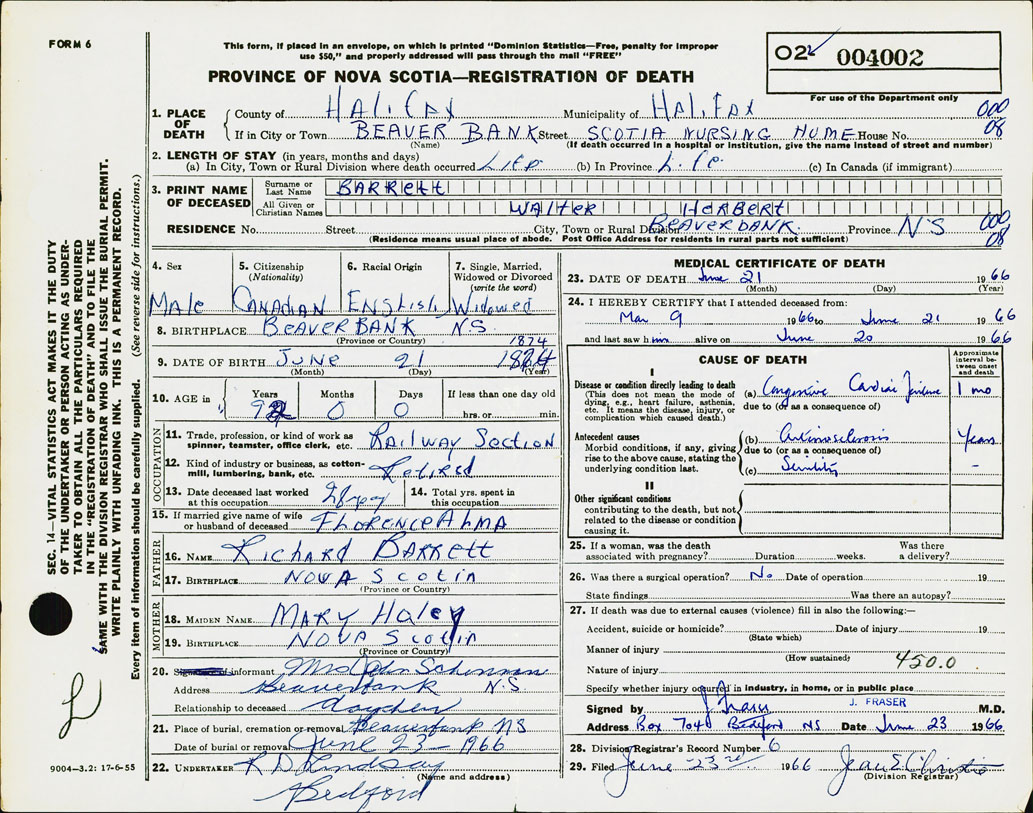 FORM 6
This form, if placed in an envelope, on which is printed "Dominion Statistics—Free, penalty for improper
use $50," and properly addressed will pass through the mail "FREE"
PROVINCE OF NOVA SCOTIA—REGISTRATION OF DEATH
022 004002
For use of the Department only
1. PLACE OF DEATH
County of HALIFAX Municipality of HALIFAX 000
If in City or Town BEAVER BANK Street SCOTIA NURSING HOME House No. 08
(Name) (If death occurred in a hospital or institution, give the name instead of street and number)
2. LENGTH OF STAY (in years, months and days)
(a) In City, Town or Rural Division where death occurred Life (b) In Province Life (c) In Canada (if immigrant)
3. PRINT NAME OF DECEASED
Surname or Last Name BARRETT
All Given or Christian Names WALTER HERBERT
RESIDENCE No. Street City, Town or Rural Division BEAVERBANK Province NS 000
(Residence means usual place of abode. Post Office Address for residents in rural parts not sufficient) 08
4. Sex
Male
5. Citizenship
(Nationality)
CANADIAN
6. Racial Origin
ENGLISH
7. Single, Married,
Widowed or Divorced
(write the word)
Widowed
8. BIRTHPLACE BEAVER BANK NS
(Province or Country)
1874
9. DATE OF BIRTH JUNE 21
(Month) (Day) (Year)
10. AGE in
Years Months Days If less than one day
92 0 0 hrs. or min.
OCCUPATION
11. Trade, profession, or kind of work as
spinner, teamster, office clerk, etc. RAILWAY SECTION
12. Kind of industry or business, as cotton-
mill, lumbering, bank, etc. Retired
13. Date deceased last worked
at this occupation
14. Total yrs. spent in
this occupation
15. If married give name of wife
or husband of deceased FLORENCE ALMA
FATHER
16. NAME RICHARD BARRETT
17. BIRTHPLACE NOVA Scotia
(Province or Country)
MOTHER
18. MAIDEN NAME MARY Haley
19. BIRTHPLACE NOVA Scotia
(Province or Country)
20. informant Mrs
Address Beaverbank N.S
Relationship to deceased
21. Place of burial, cremation or removal Beaverbank NS
Date of burial or removal June 23 – 1966
22. UNDERTAKER R D Lindsay
(Name and address)
Bedford
MEDICAL CERTIFICATE OF DEATH
23. DATE OF DEATH June 21 1966
(Month) (Day) (Year)
24. I HEREBY CERTIFY that I attended deceased from:
Mar 9 1966 to June 21 1966
and last saw him alive on June 20 1966
CAUSE OF DEATH
Approximate interval between onset and death
I
Disease or condition directly leading to death
(This does not mean the mode of
dying, e.g., heart failure, asthenia,
etc. It means the disease, injury, or
complication which caused death.)
(a) Congestive Cardiac Failure 1 mo
due to (or as a consequence of)
Antecedent causes
Morbid conditions, if any, giving
rise to the above cause, stating the
underlying condition last.
(b) Arteriosclerosis Years
due to (or as a consequence of)
(c) Senility –
II
Other significant conditions
contributing to the death, but not
related to the disease or condition
causing it.
25. If a woman, was the death
associated with pregnancy? Duration weeks. Was there
a delivery?
26. Was there a surgical operation? No Date of operation 19
State findings Was there an autopsy?
27. If death was due to external causes (violence) fill in also the following:—
Accident, suicide or homicide? Date of injury 19
(State which)
Manner of injury
(How sustained)
Nature of injury 450.0
Specify whether injury occurred in industry, in home, or in public place
Signed by J Fraser J. FRASER M.D.
Address Box 704 Bedford NS Date June 23 1966
28. Division Registrar's Record Number 6
29. Filed June 23rd 1966 Jean E Christie
(Division Registrar)
SEC. 14—VITAL STATISTICS ACT MAKES IT THE DUTY
OF THE UNDERTAKER OR PERSON ACTING AS UNDER-
TAKER TO OBTAIN ALL THE PARTICULARS REQUIRED
IN THE "REGISTRATION OF DEATH" AND TO FILE THE
SAME WITH THE DIVISION REGISTRAR WHO SHALL ISSUE THE BURIAL PERMIT.
WRITE PLAINLY WITH UNFADING INK. THIS IS A PERMANENT RECORD.
Every item of information should be carefully supplied. (See reverse side for instructions.)
9004—3.2: 17-6-55